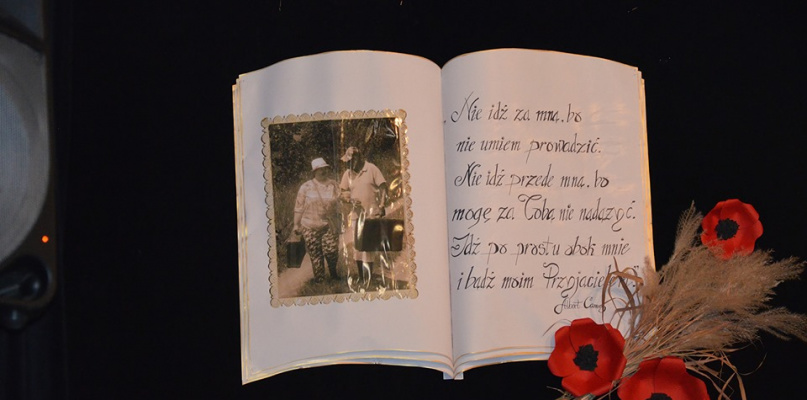 „Nie idź za mną, bo
nie umiem prowadzić.
Nie idź przede mną, bo
mogę za Tobą nie nadążyć.
Idź po prostu obok mnie
i bądź moim Przyjacielem"
Albert Camus